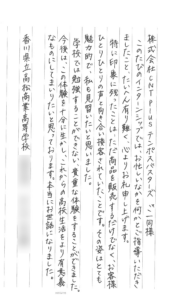 株式会社CNT PLUS テンポスバスターズ 御一同様
このたびのインターンシップでは、お忙しいなか何かとご指導いただき
ましたこと、心よりお礼申し上げます。
特に印象に残ったことは、ただ商品を販売するだけでなく、お客様
ひとりひとりの声と向き合い接客されてたことです。その姿はとても
魅力的で、私も見習いたいと思いました。
学校では勉強することができない、貴重な体験をすることができました。
今後は、この体験を十分に生かし、これからの高校生活をより有意義
なものにしてまいりたいと思っております。本当にお世話になりました。
香川県立高松商業高等学校